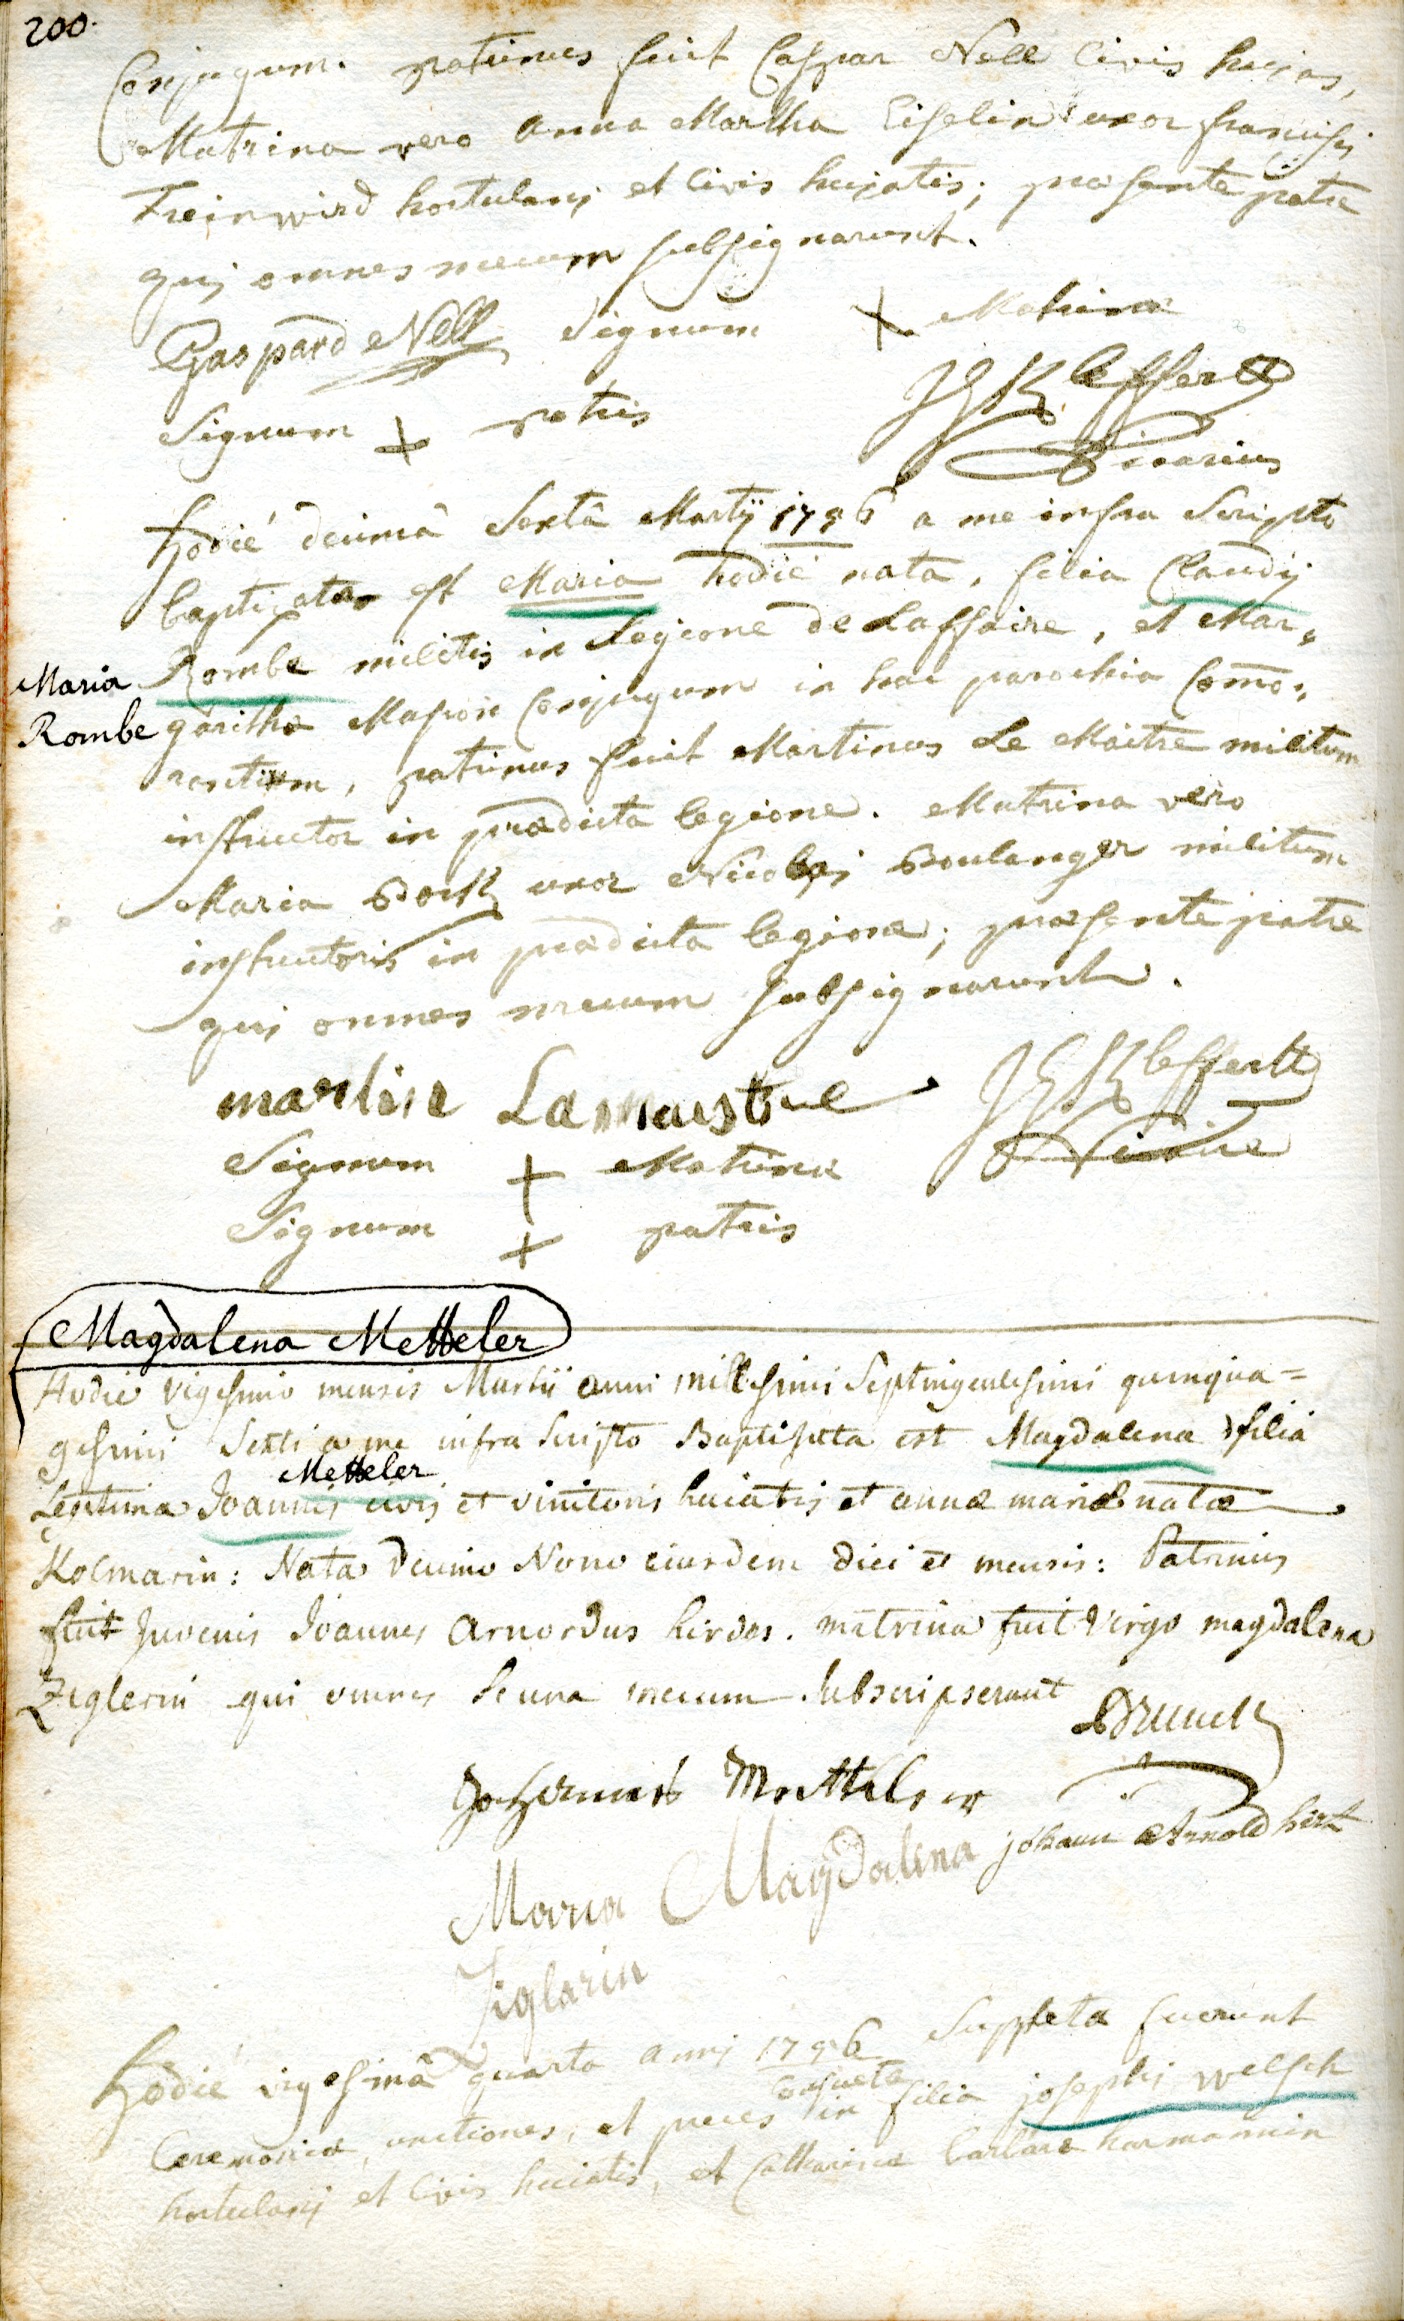 200.
Conjugum. patrinus fuit Caspar Nell Civis hujas,
Matrina vero Anna Martha Eiselin uxor francisci
Freinwird hortulanj et Civis hujatis; præsente patre
qui omnes mecum subsignarunt.
Gaspard Nell Signum + Matrinæ
Signum + patris JGKleffert
Vicarius
Hodié decimâ Sextâ Martij 1756 a me infra Scripto
baptizata est Maria hodié nata, filia Claudij
Rombe militis in Legione de Laffaire, et Mar„
Maria
Rombe
garithæ Mapon Conjugum in hac parochia Com̄o„
rantium, patrinus fuit Martinus Le Maitre militum
instructor in prædicta legione. Matrina vero
Maria Bock uxor Nicolaj Boulanger militum
instructoris in prædicta legione; præsente patre
qui omnes mecum subsignarunt.
martin Lamaistre JGKleffert
Signum + Matrinæ Vicaire
Signum + patris
Magdalena Metteler
Hodie vigesimo mensis Martii anni millesimi Septingentesimi quinqua=
gesimi Sexti a me infra Scripto Baptisata est Magdalena filia
Metteler
Legitima Joannis civis et vinitoris huiatis et annæ mariæ natæ
Kolmarin: Nata decimo Nono eiusdem diei et mensis: Patrinus
fuit Juvenis Joannes Arnordus hirdos. matrina fuit Virgo magdalena
Zeglerin qui omnes hic una mecum Subscripserunt
Brunck
Johannes Metteler
johann Arnold hirt
Maria Magdalena
Ziglarin
Hodié vigesimâ quarta anni 1756 Suppleta fuerunt
Consueta
Ceremoniæ, unctiones, et preces in filia josephi Welsch
hortulanj et Civis huiatis, et Catharinæ barbaræ harmannin